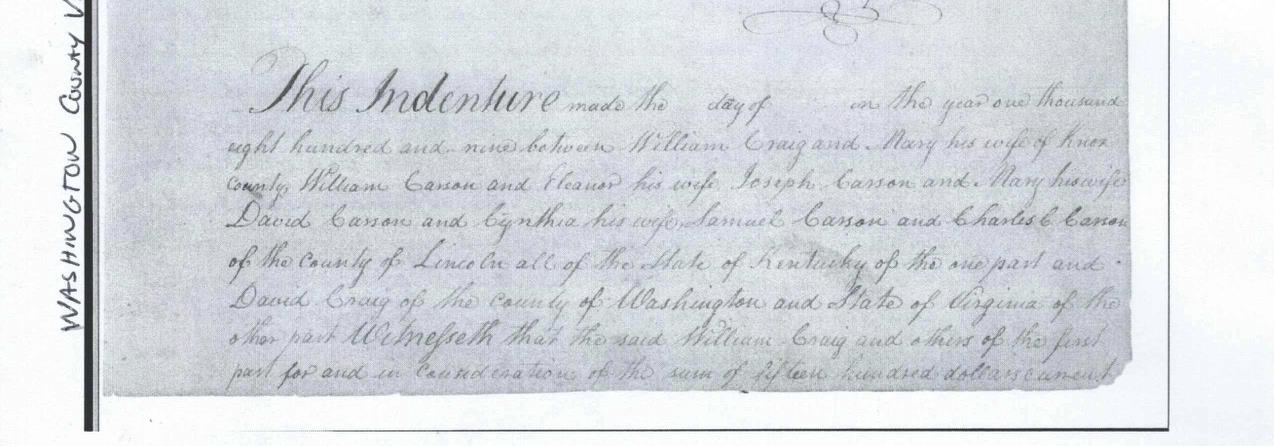 WASHINGTON COUNTY V
This Indenture made the day of in the year one thousand
eight hundred and nine between William Craig and Mary his wife of Knox
county William Carson and Eleanor his wife Joseph Carson and Mary his wife
David Carson and Cynthia his wife Samuel Carson and Charles C Carson
of the County of Lincoln all of the State of Kentucky of the one part and
David Craig of the county of Washington and State of Virginia of the
other part Witnesseth that the said William Craig and others of the first
part for and in consideration of the sum of fifteen hundred dollars current